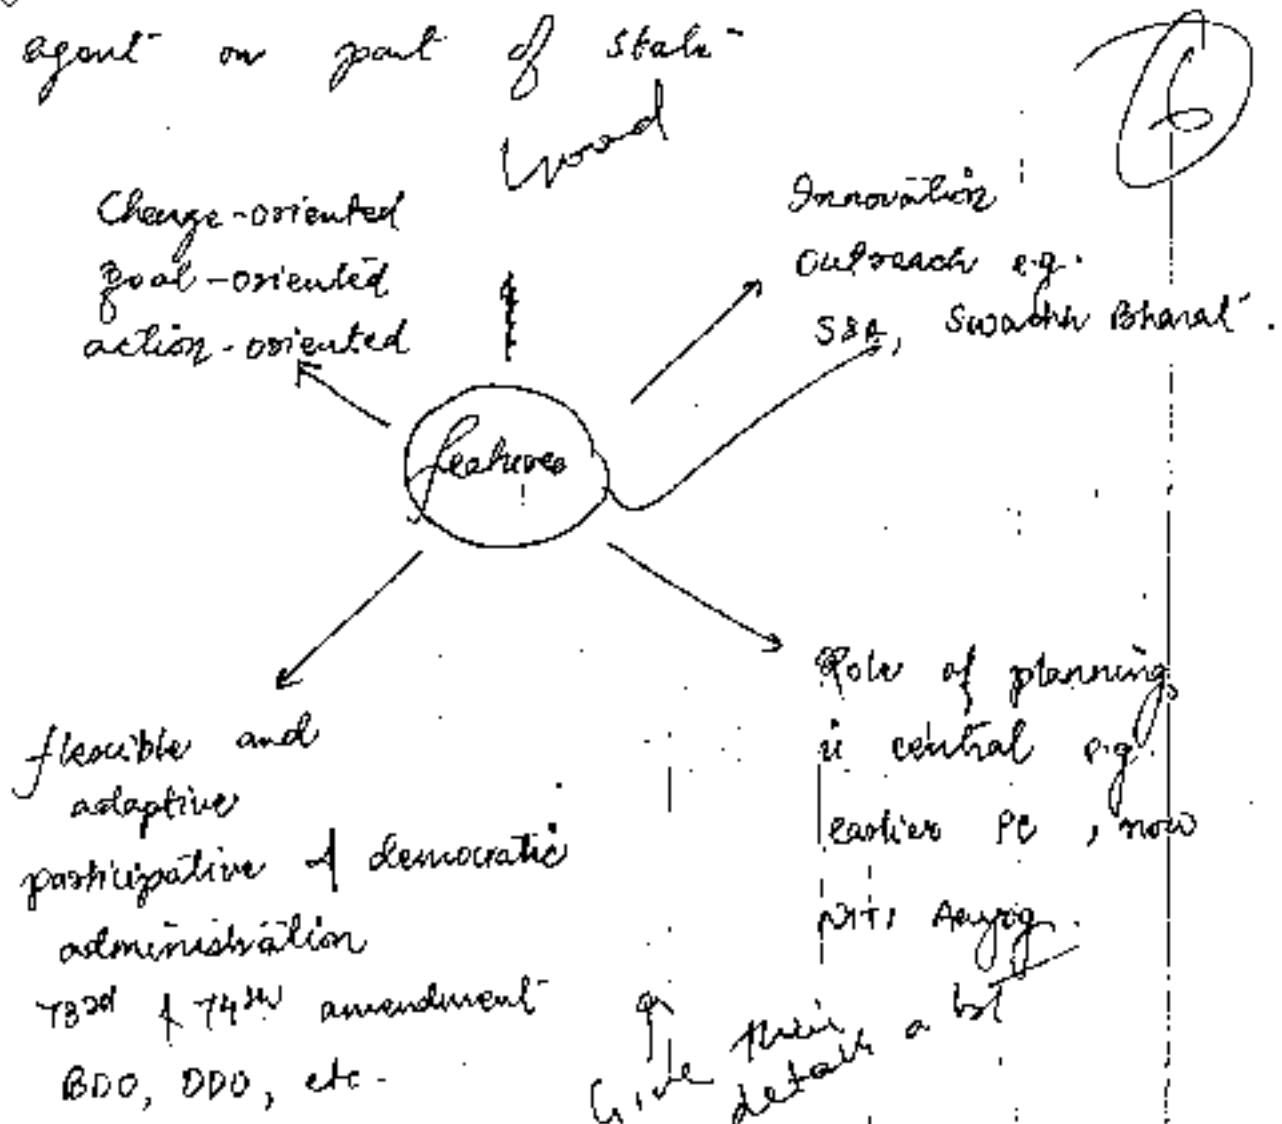 agent on part of state
Good
6
Change-oriented
goal-oriented
action-oriented
Innovation
Outreach e.g.
SSA, Swachh Bharat.
features
flexible and
adaptive
participative & democratic
administration
73rd & 74th amendment
BDO, DDO, etc.
Role of planning
is central e.g.
earlier PC, now
NITI Aayog.
Give their
details a bit